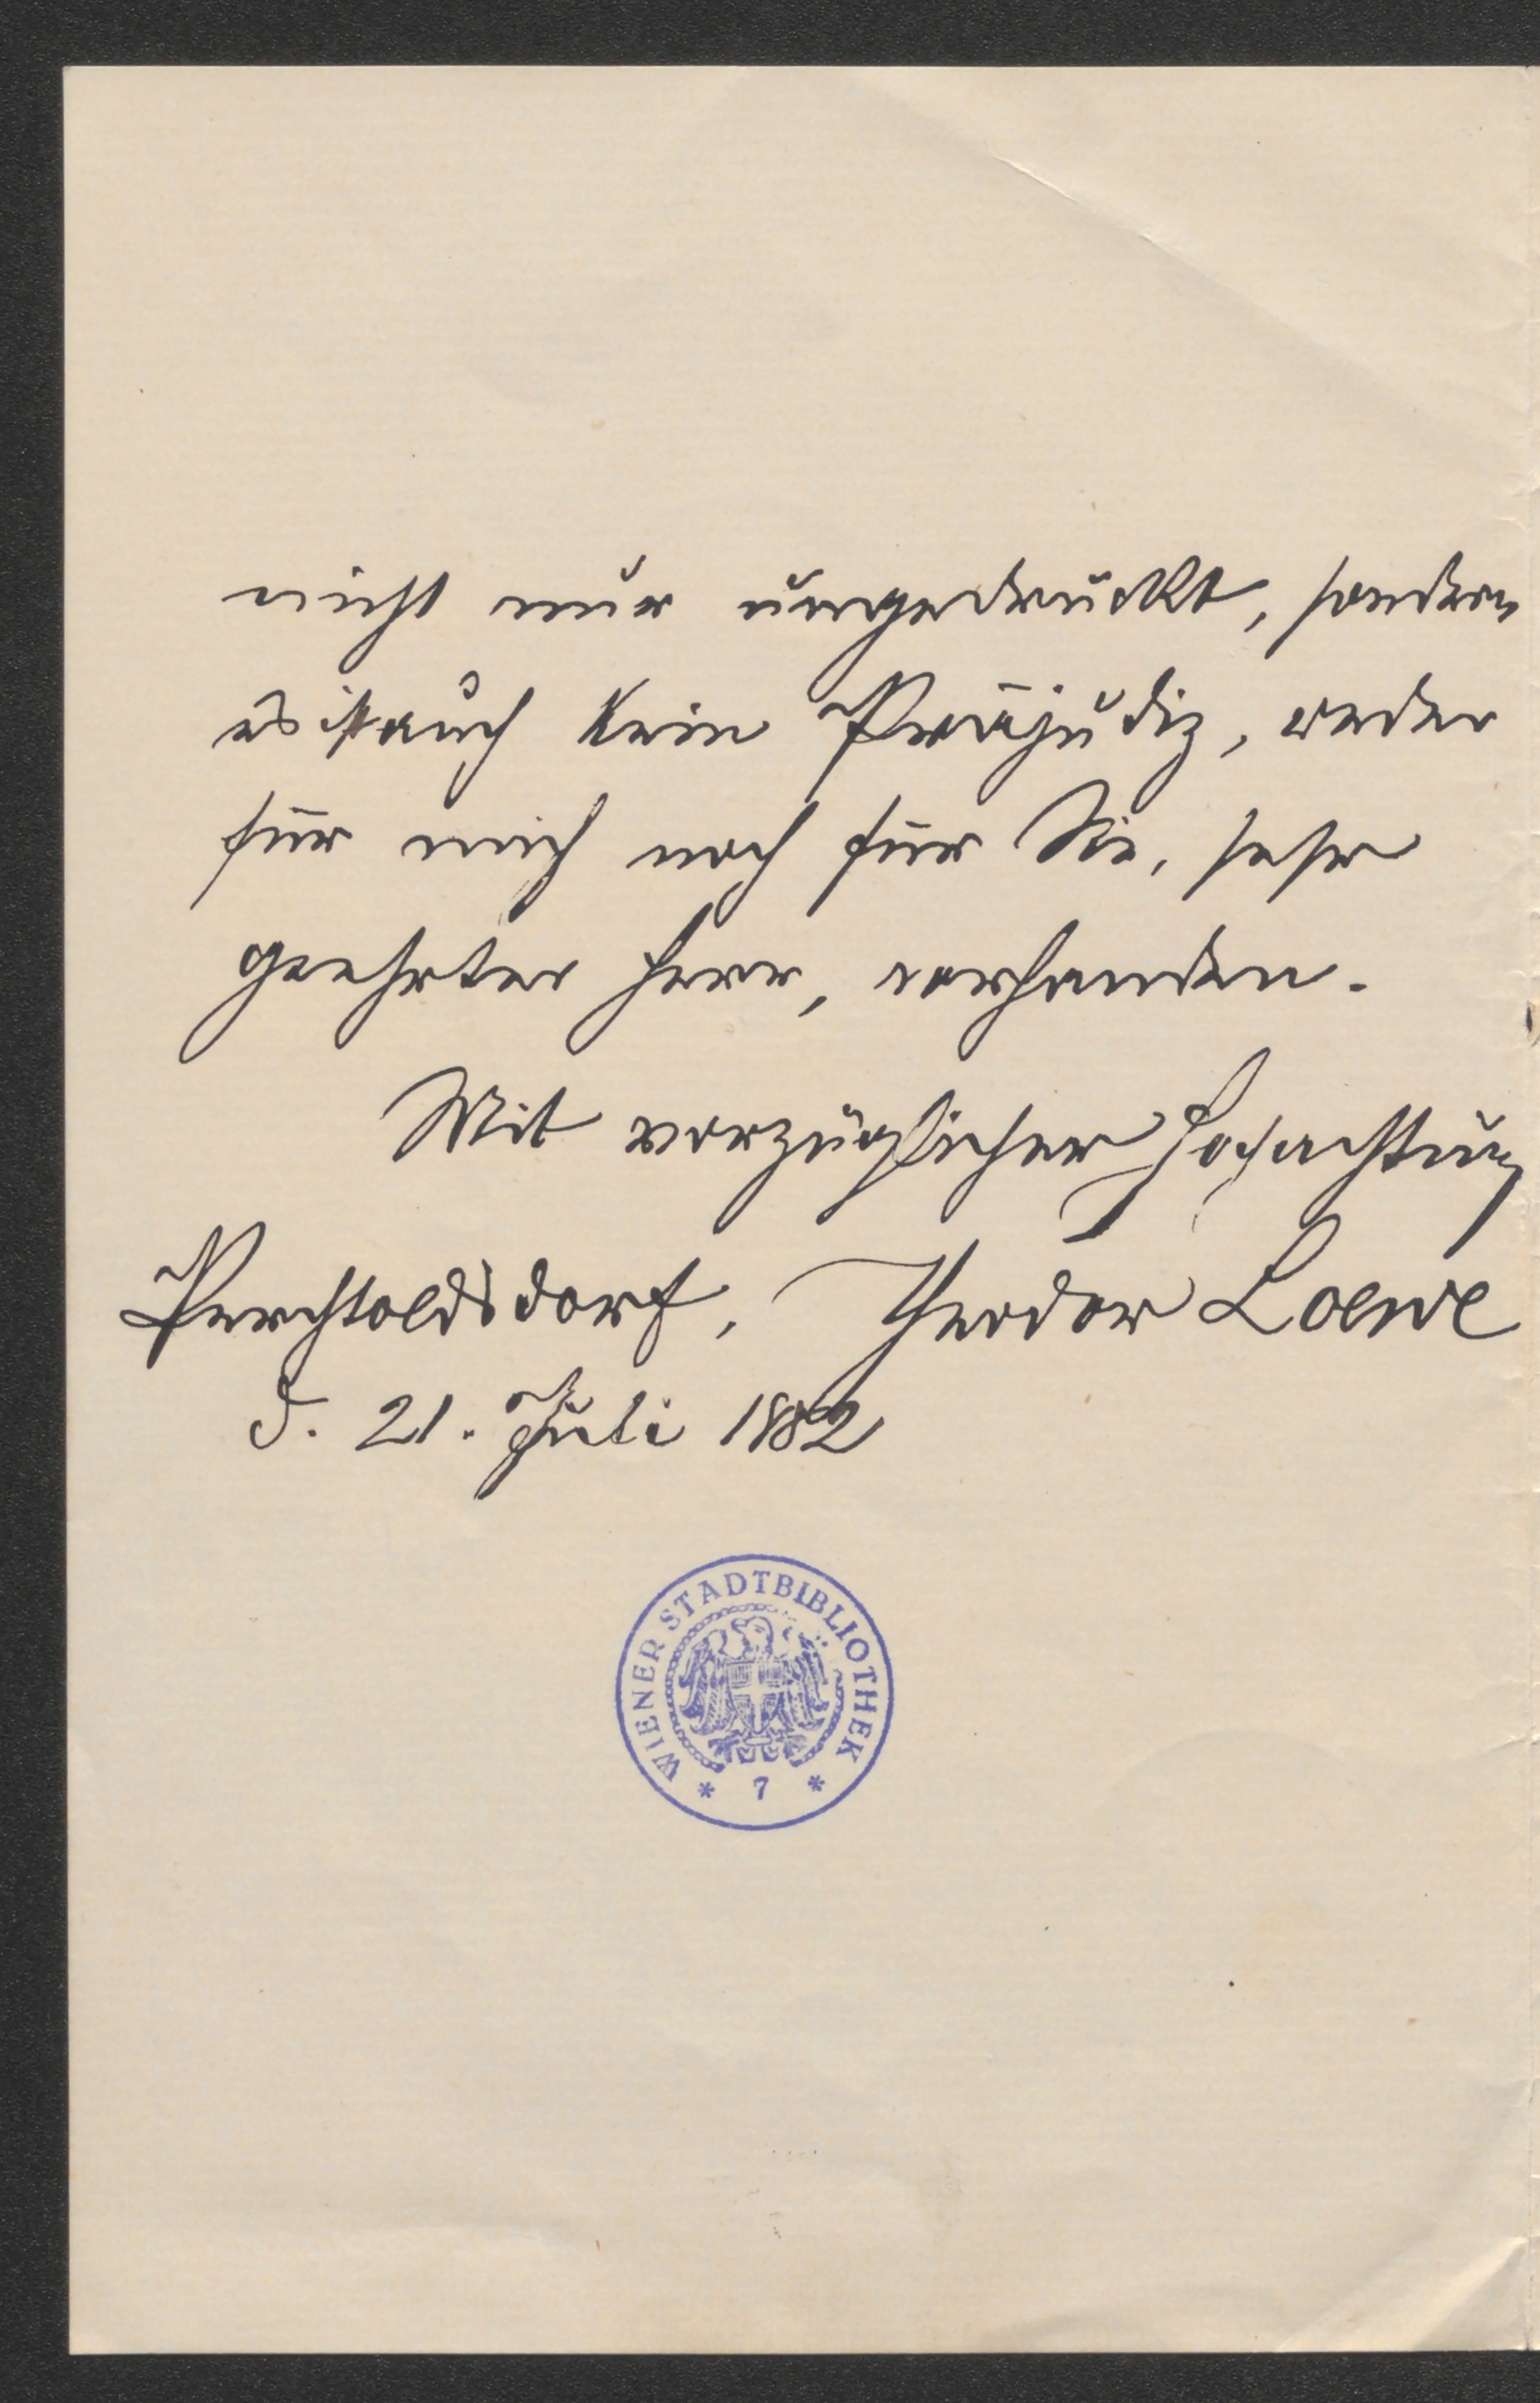 nicht nur ungedruckt, sondern
es ist auch kein Präjudiz, weder
für mich noch für Sie, sehr
geehrter Herr, vorhanden.
Mit vorzüglicher Hochachtung
Perchtoldsdorf, Theodor Loewe
d. 21. Juli 1882
WIENER STADTBIBLIOTHEK
* 7 *